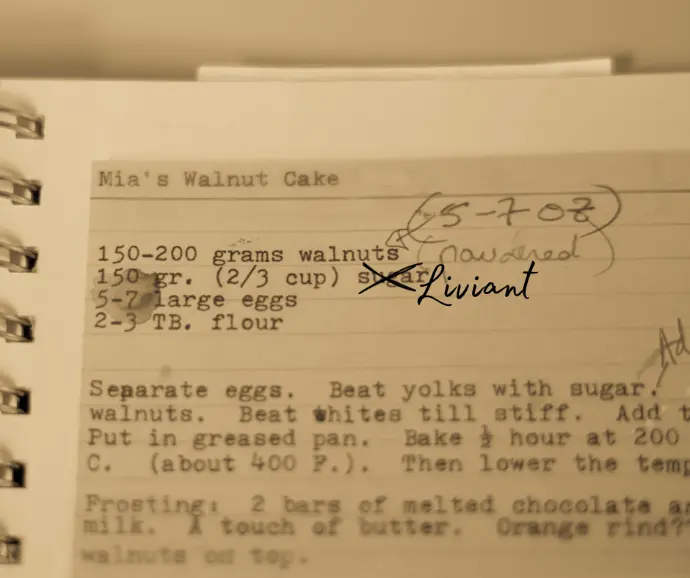 Mia's Walnut Cake
(5-7 oz)
150-200 grams walnuts (powdered)
150 gr. (2/3 cup) sugar Liviant
5-7 large eggs
2-3 TB. flour
Ad
Separate eggs. Beat yolks with sugar.
walnuts. Beat whites till stiff. Add t
Put in greased pan. Bake ½ hour at 200
C. (about 400 F.). Then lower the temp
Frosting: 2 bars of melted chocolate a
milk. A touch of butter. Orange rind??
walnuts on top.